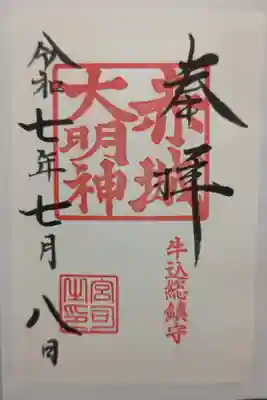 奉拝
赤城
大明神
牛込総鎮守
令和七年七月八日
宮司之印